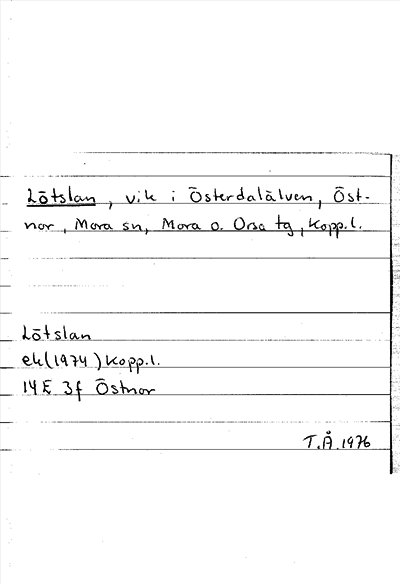 Lötslan, vik i Österdalälven, Öst-
nor, Mora sn, Mora o. Orsa tg, Kopp.l.
Lötslan
ek(1974) Kopp.l.
14E 3f Östnor
T.Å.1976